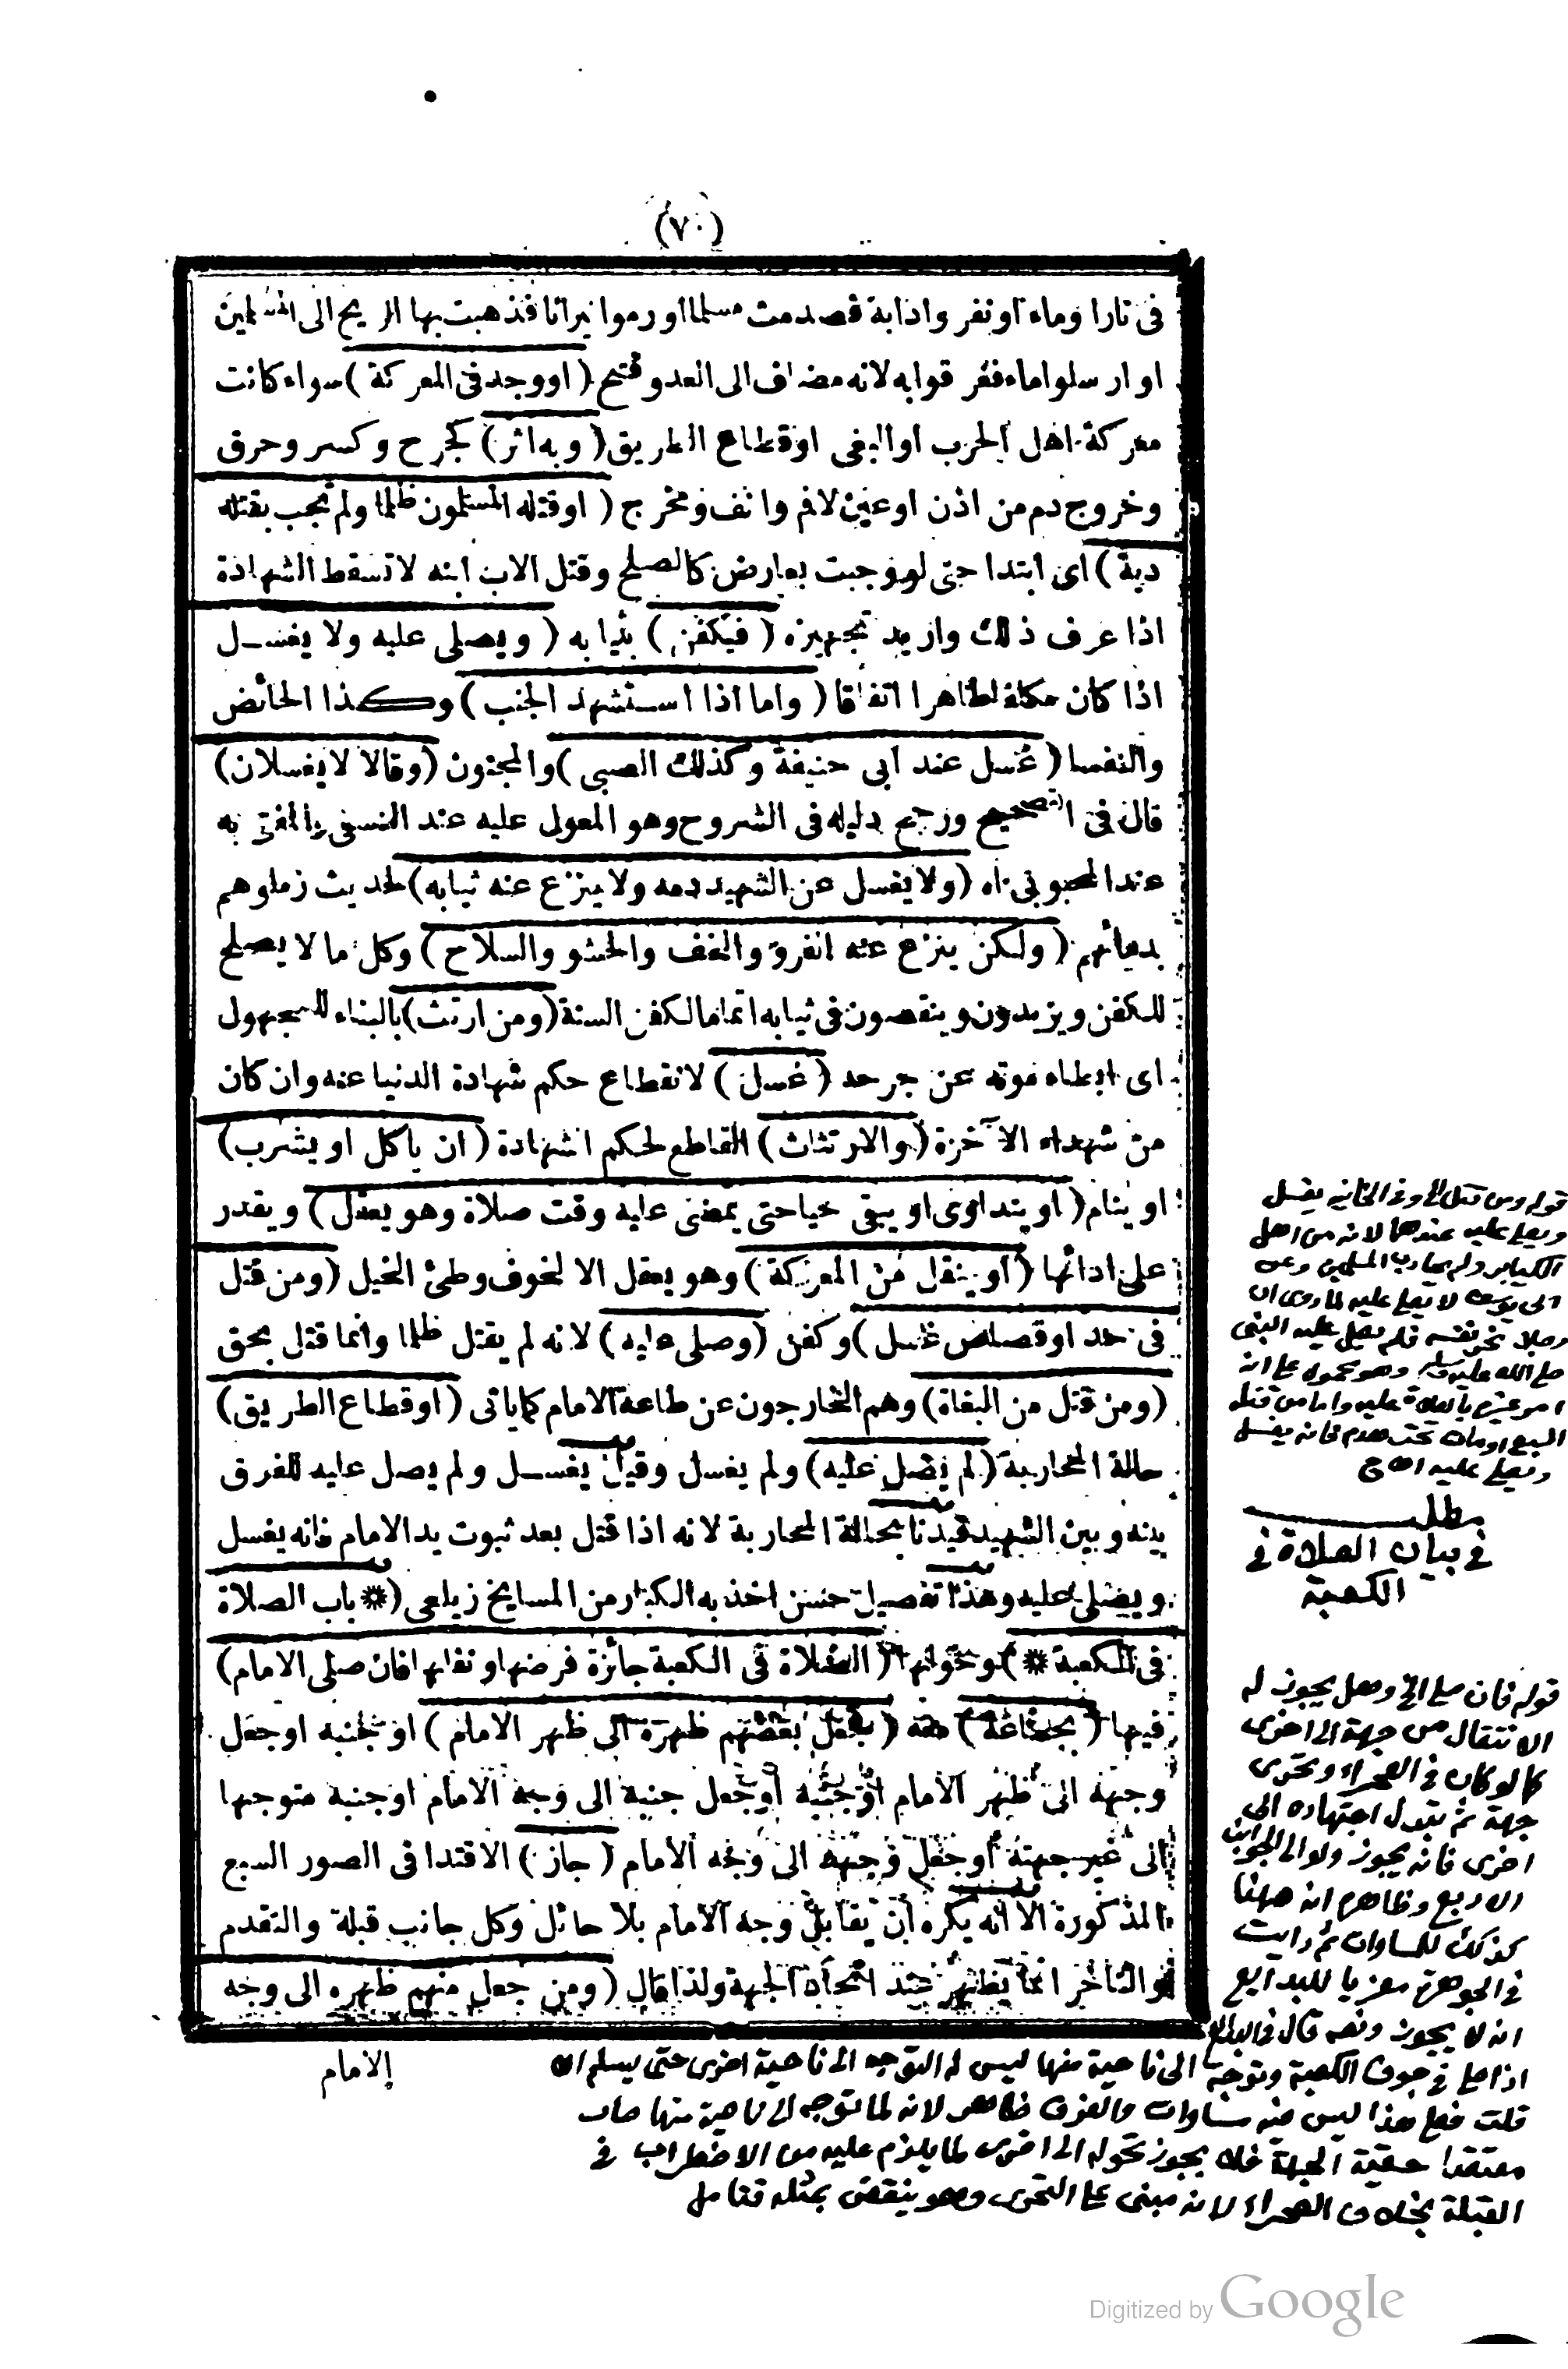 (٧٠)
فى نار او ماء او نفر وا دابة فصدمت مسلما او رموا نيرانا فذهبت بها الريح الى المسلمين
او ارسلوا ماء فغرقوا به لانه مضاف الى العدو فتح (او وجد فى المعركة) سواء كانت
معركة اهل الحرب او البغى او قطاع الطريق (وبه اثر) كجرح وكسر وحرق
وخروج دم من اذن او عين لا فم وانف ومخرج (او قتله المسلمون ظلما ولم تجب بقتله
دية) اى ابتدا حتى لو وجبت بعارض كالصلح وقتل الاب ابنه لا تسقط الشهادة
اذا عرف ذلك واريد تجهيزه (فيكفن) بثيابه (ويصلى عليه ولا يغسل
اذا كان مكلفا طاهرا اتفاقا (واما اذا استشهد الجنب) وكذا الحائض
والنفسا (غسل عند ابى حنيفة وكذلك الصبى) والمجنون (وقالا لا يغسلان)
قال فى التصحيح ورجح دليله فى الشروح وهو المعول عليه عند النسفى والمفتى به
عند المحبوبى اه (ولا يغسل عن الشهيد دمه ولا ينزع عنه ثيابه) لحديث زملوهم
بدمائهم (ولكن ينزع عنه الفرو والخف والحشو والسلاح) وكل ما لا يصلح
للكفن ويزيدون وينقصون فى ثيابه اتماما لكفن السنة (ومن ارتث) بالبناء للمجهول
اى ابطاء موته عن جرحه (غسل) لانقطاع حكم شهادة الدنيا عنه وان كان
من شهداء الآخرة (والارتثاث) القاطع لحكم الشهادة (ان يأكل او يشرب)
او ينام (او يتداوى او يبقى حيا حتى يمضى عليه وقت صلاة وهو يعقل) ويقدر
على ادائها (او ينقل من المعركة) وهو يعقل الا لخوف وطئ الخيل (ومن قتل
فى حد او قصاص غسل) وكفن (وصلى عليه) لانه لم يقتل ظلما وانما قتل بحق
(ومن قتل من البغاة) وهم الخارجون عن طاعة الامام كما ياتى (او قطاع الطريق)
حالة المحاربة (لم يصل عليه) ولم يغسل وقيل يغسل ولم يصل عليه للفرق
بينه وبين الشهيد قيدنا بحالة المحاربة لانه اذا قتل بعد ثبوت يد الامام فانه يغسل
ويصلى عليه وهذا تفصيل حسن اخذ به الكبار من المسايخ زيلعى (❋ باب الصلاة
فى الكعبة ❋) وحولها (الصلاة فى الكعبة جائزة فرضها ونفلها فان صلى الامام)
فيها (بجماعة) معه (فجعل بعضهم ظهره الى ظهر الامام) او جنبه او جعل
وجهه الى ظهر الامام او جنبه او جعل جنبه الى وجه الامام او جنبه متوجها
الى غير جهته او جعل وجهه الى وجه الامام (جاز) الاقتدا فى الصور السبع
المذكورة الا انه يكره ان يقابل وجه الامام بلا حائل وكل جانب قبلة والتقدم
والتأخر انما يظهر عند اتحاد الجهة ولذا قال (ومن جعل منهم ظهره الى وجه
الامام
قوله ومن قتل الخ وفى الخانيه يغسل
ويصلى عليه عندهما لانه من اهل
الكبائر ولم يحارب المسلمين وعن
ابى يوسف لا يصلى عليه لما روى ان
رجلا نحر نفسه فلم يصل عليه النبى
صلى الله عليه وسلم وهو محمول على انه
امر غيره بالصلاة عليه واما من قتله
السبع او مات تحت هدم فانه يغسل
ويصلى عليه اهـ ج
مطلب
فى بيان الصلاة فى
الكعبة
قوله فان صلى الخ وهل يجوز له
الانتقال من جهة الى اخرى
كما لو كان فى الصحراء وتحرى
جهة ثم تبدل اجتهاده الى
اخرى فانه يجوز ولو الى الجوانب
الاربع وظاهره انه ههنا
كذلك للمساواة ثم رايت
فى الجوهرة معزيا للبدايع
انه لا يجوز ونصه قال فى البدايع
اذا صلى فى جوف الكعبة وتوجه الى ناحية منها ليس له التوجه الى ناحية اخرى حتى يسلم اهـ
قلت فعلى هذا ليس فيه مساوات والفرق ظاهر لانه لما توجه الى ناحية منها صار
معتقدا حقية الجهة فلا يجوز تحوله الى اخرى لما يلزم عليه من الاضطراب فى
القبلة بخلاف الصحراء لانه مبنى على التحرى وهو ينقض بمثله فتامل
Digitized by Google